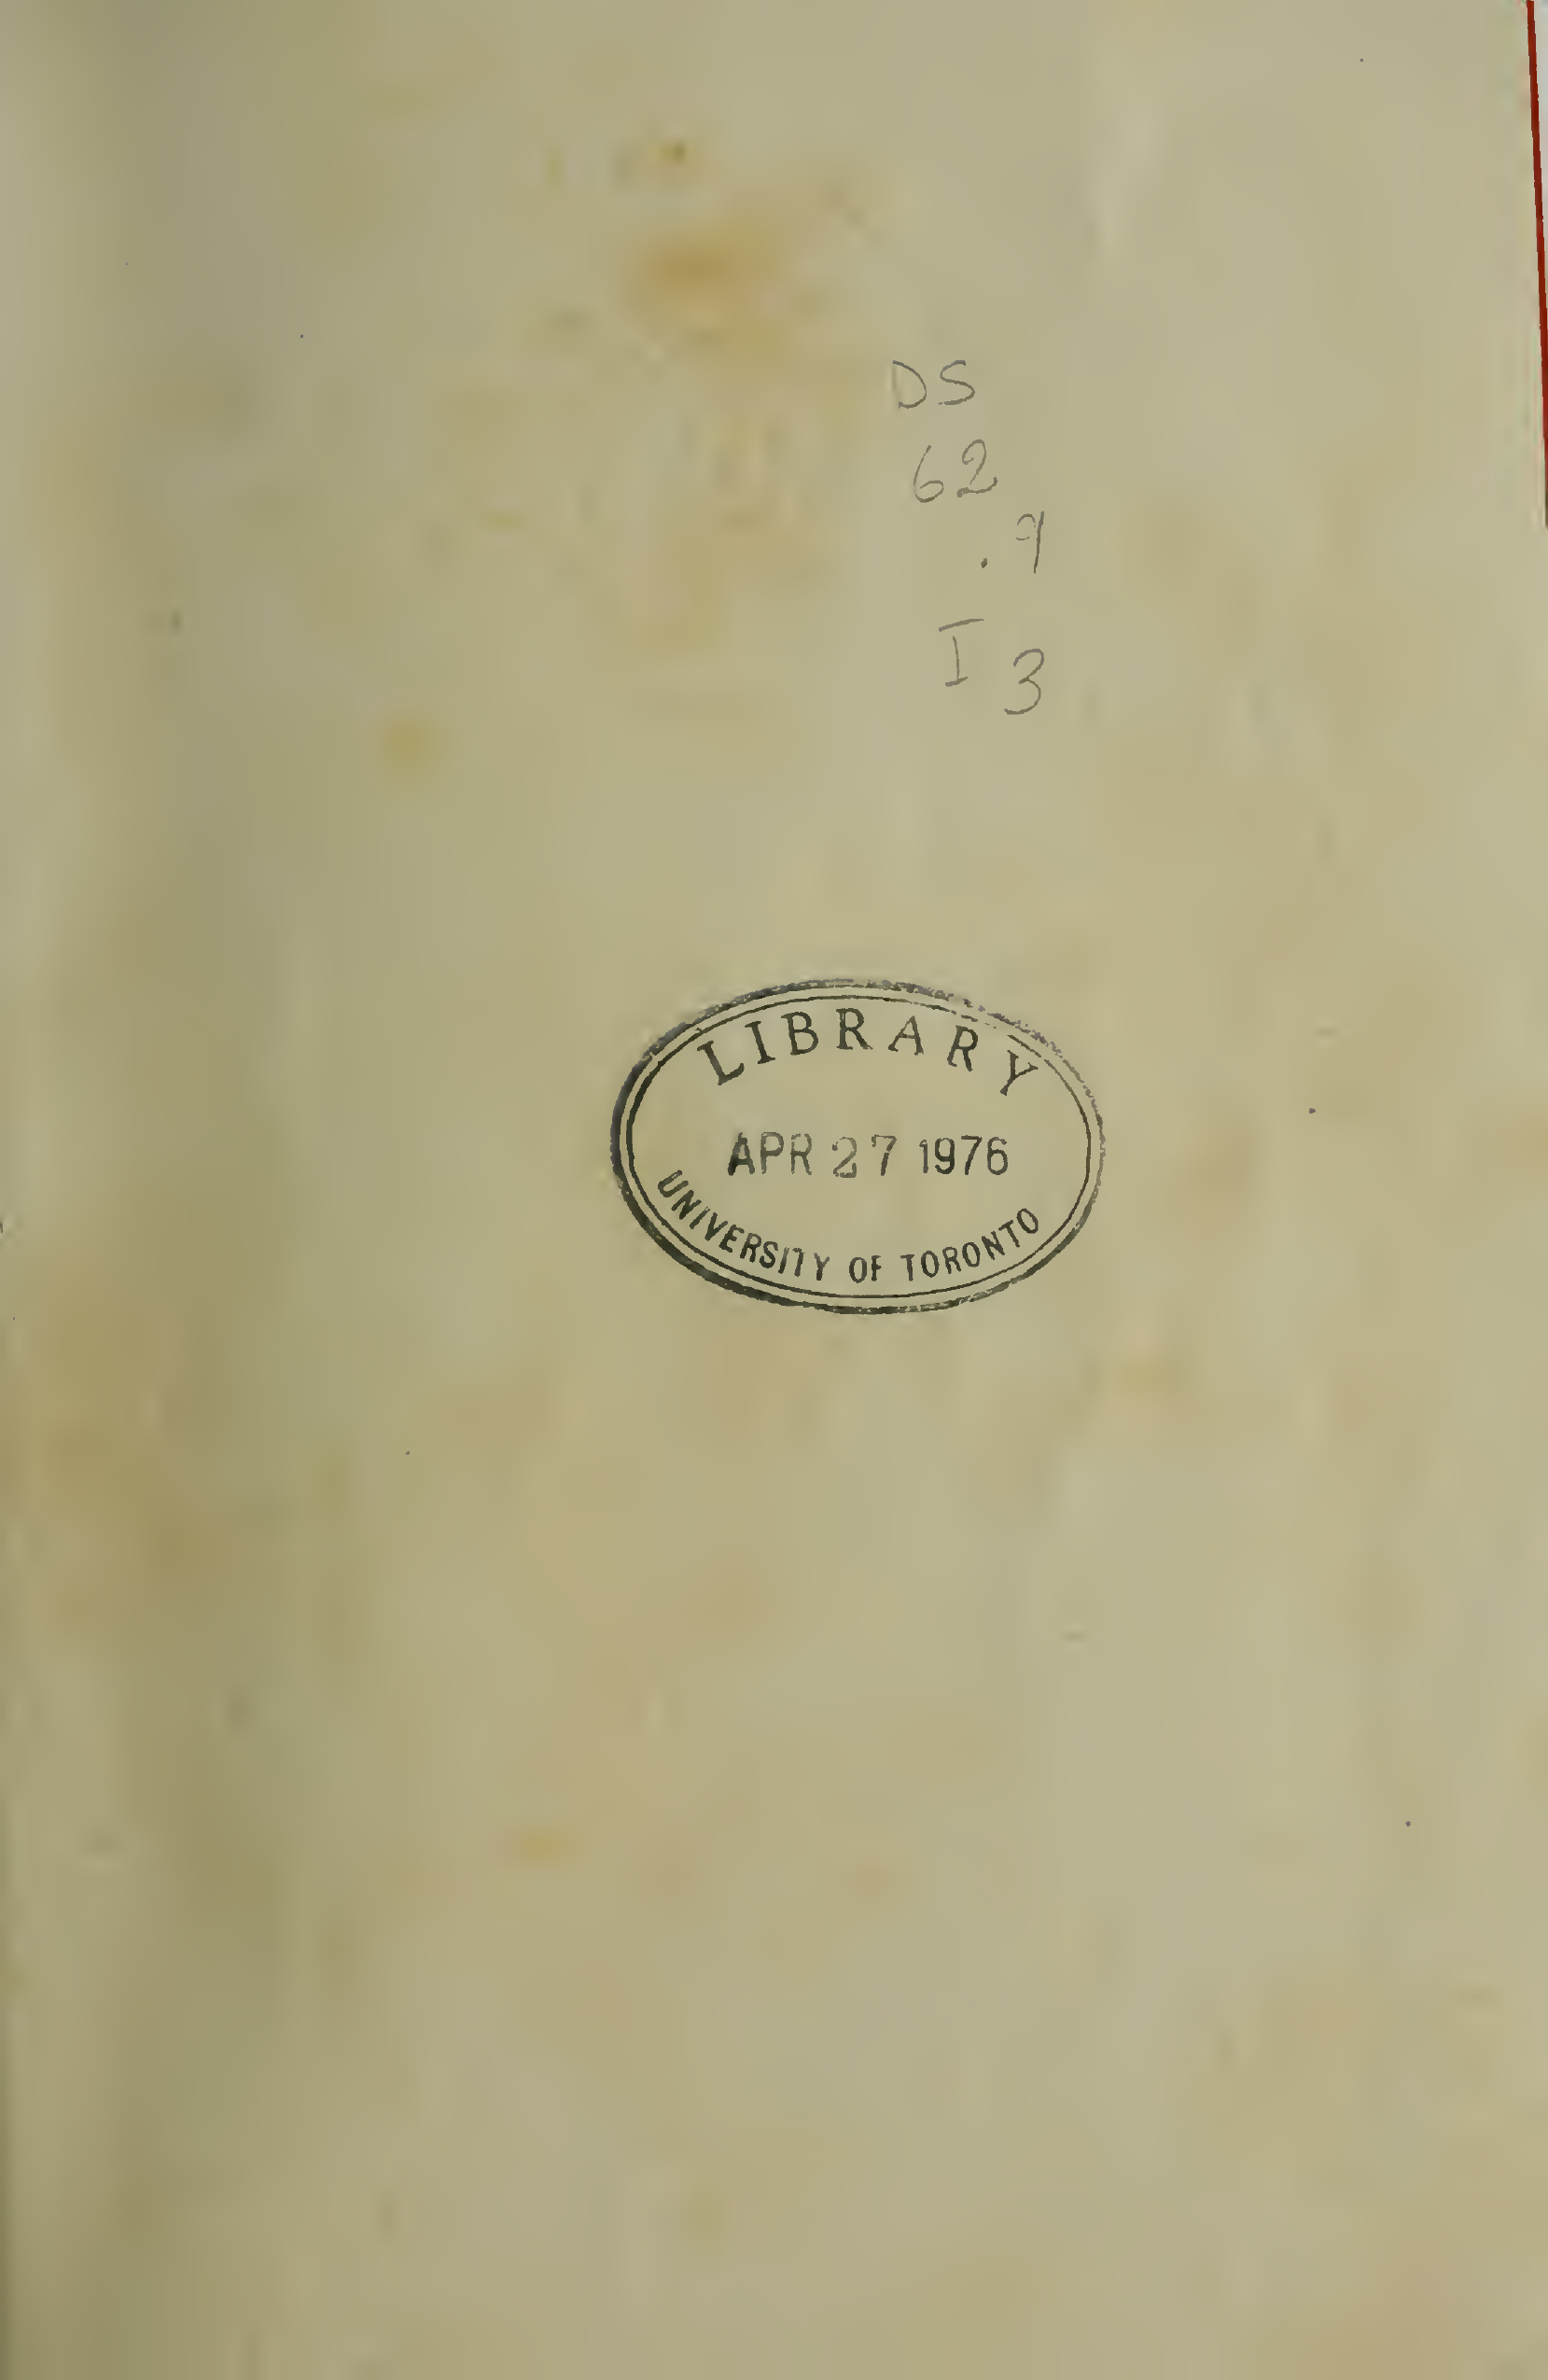 DS
62
.9
I 3
LIBRARY
APR 27 1976
UNIVERSITY OF TORONTO